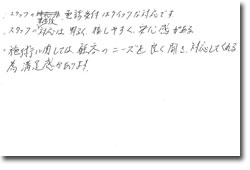 ・スタッフの電話受付はクイックな対応です
・スタッフの対応は明るく、接しやすく、安心感がある
・施術に関しては顧客のニーズを良く聞き、対応してくれる
為満足感があります